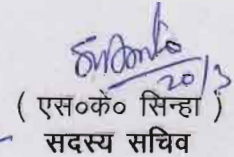 20/3
( एस०के० सिन्हा )
सदस्य सचिव